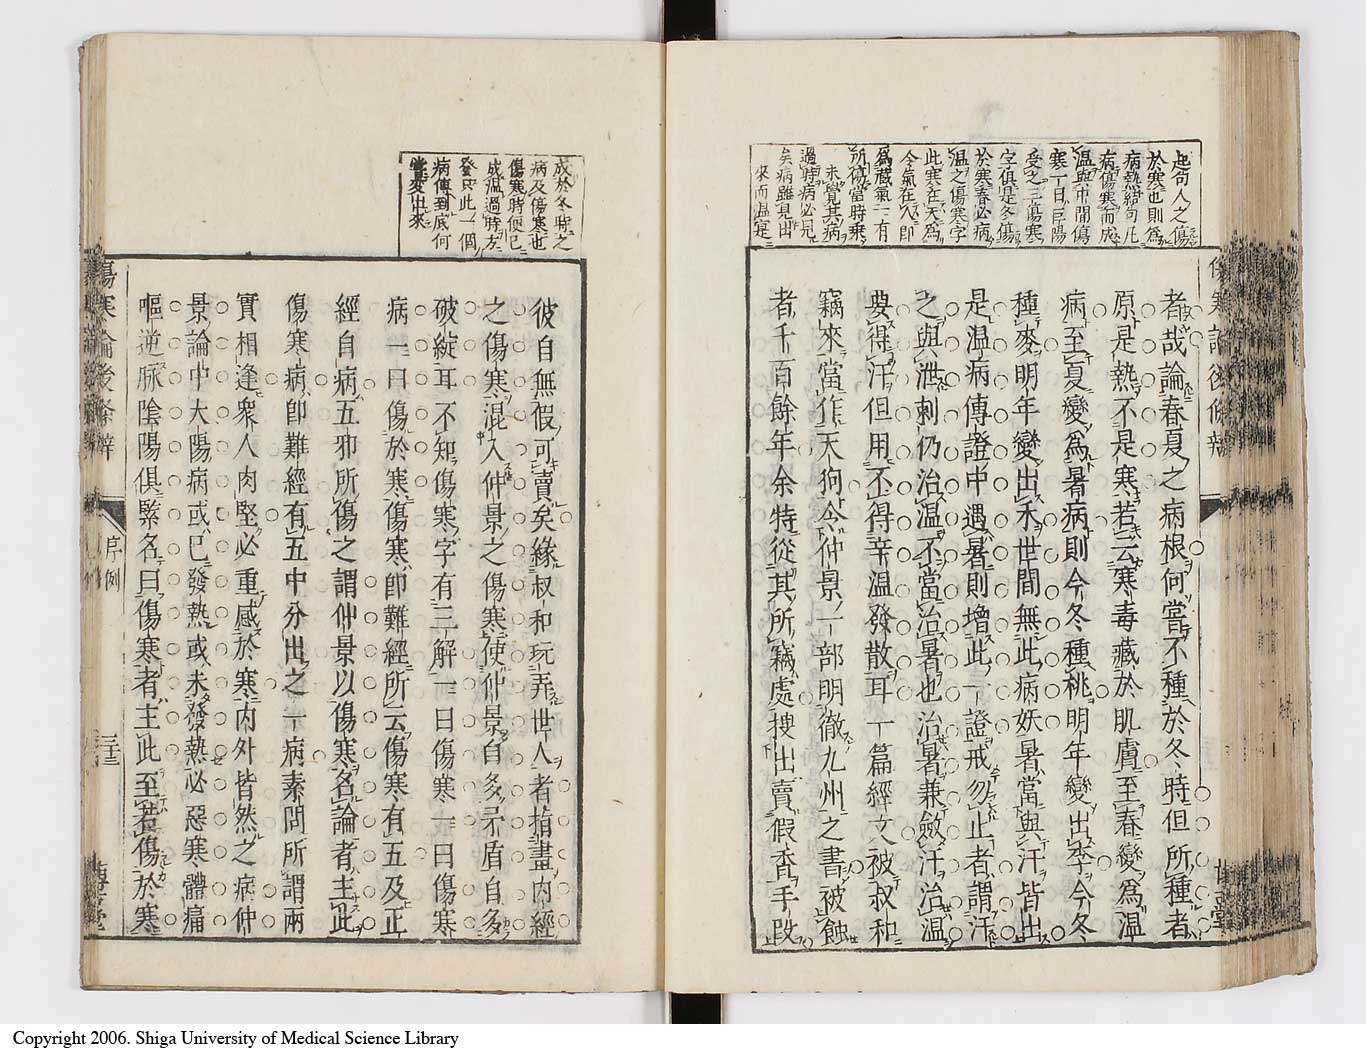 起句人之傷
於寒也則爲
病熱結句凡
病傷寒而成
溫與中間傷
寒一日巨陽
受之三傷寒
字俱是冬傷
於寒春必病
溫之傷寒字
此寒在天爲
令氣在人卽
爲藏氣一有
所傷當時乗
未覺其病
過時病必見
矣病雖見出
來而溫寔
者哉論春夏之病根何嘗不種於冬時但所種者
原是熱不是寒若云寒毒藏於肌膚至春變爲溫
病至夏變爲暑病則今冬種桃明年變出李今冬
種麥明年變出禾世間無此病妖暑當與汗皆出
是溫病傳證中遇暑則增此一證戒勿止者謂汗
之與泄刺仍治溫不當治暑也治暑兼斂汗治溫
要得汗但用不得辛溫發散耳一篇經文被叔和
竊來當作天狗令仲景一部明徹九州之書被蝕
者千百餘年余特從其所竊處捜出賣假杳手段
傷寒論後條辨
成於冬時之
病及傷寒也
傷寒時便已
成溫過時左
發只此一個
病傳到底何
嘗變出來
彼自無假可賣矣緣叔和玩弄世人者指畫内經
之傷寒混入仲景之傷寒使仲景自多矛盾自多
破綻耳不知傷寒字有三解一曰傷寒一曰傷寒
病一曰傷於寒傷寒卽難經所云傷寒有五及正
經自病五邪所傷之謂仲景以傷寒名論者主此
傷寒病卽難經有五中分出之一病素問所謂兩
實相逢衆人肉堅必重感於寒内外皆然之病仲
景論中大陽病或已發熱或未發熱必惡寒體痛
嘔逆脉陰陽俱緊名曰傷寒者主此至若傷於寒
傷寒論後條辨
序例